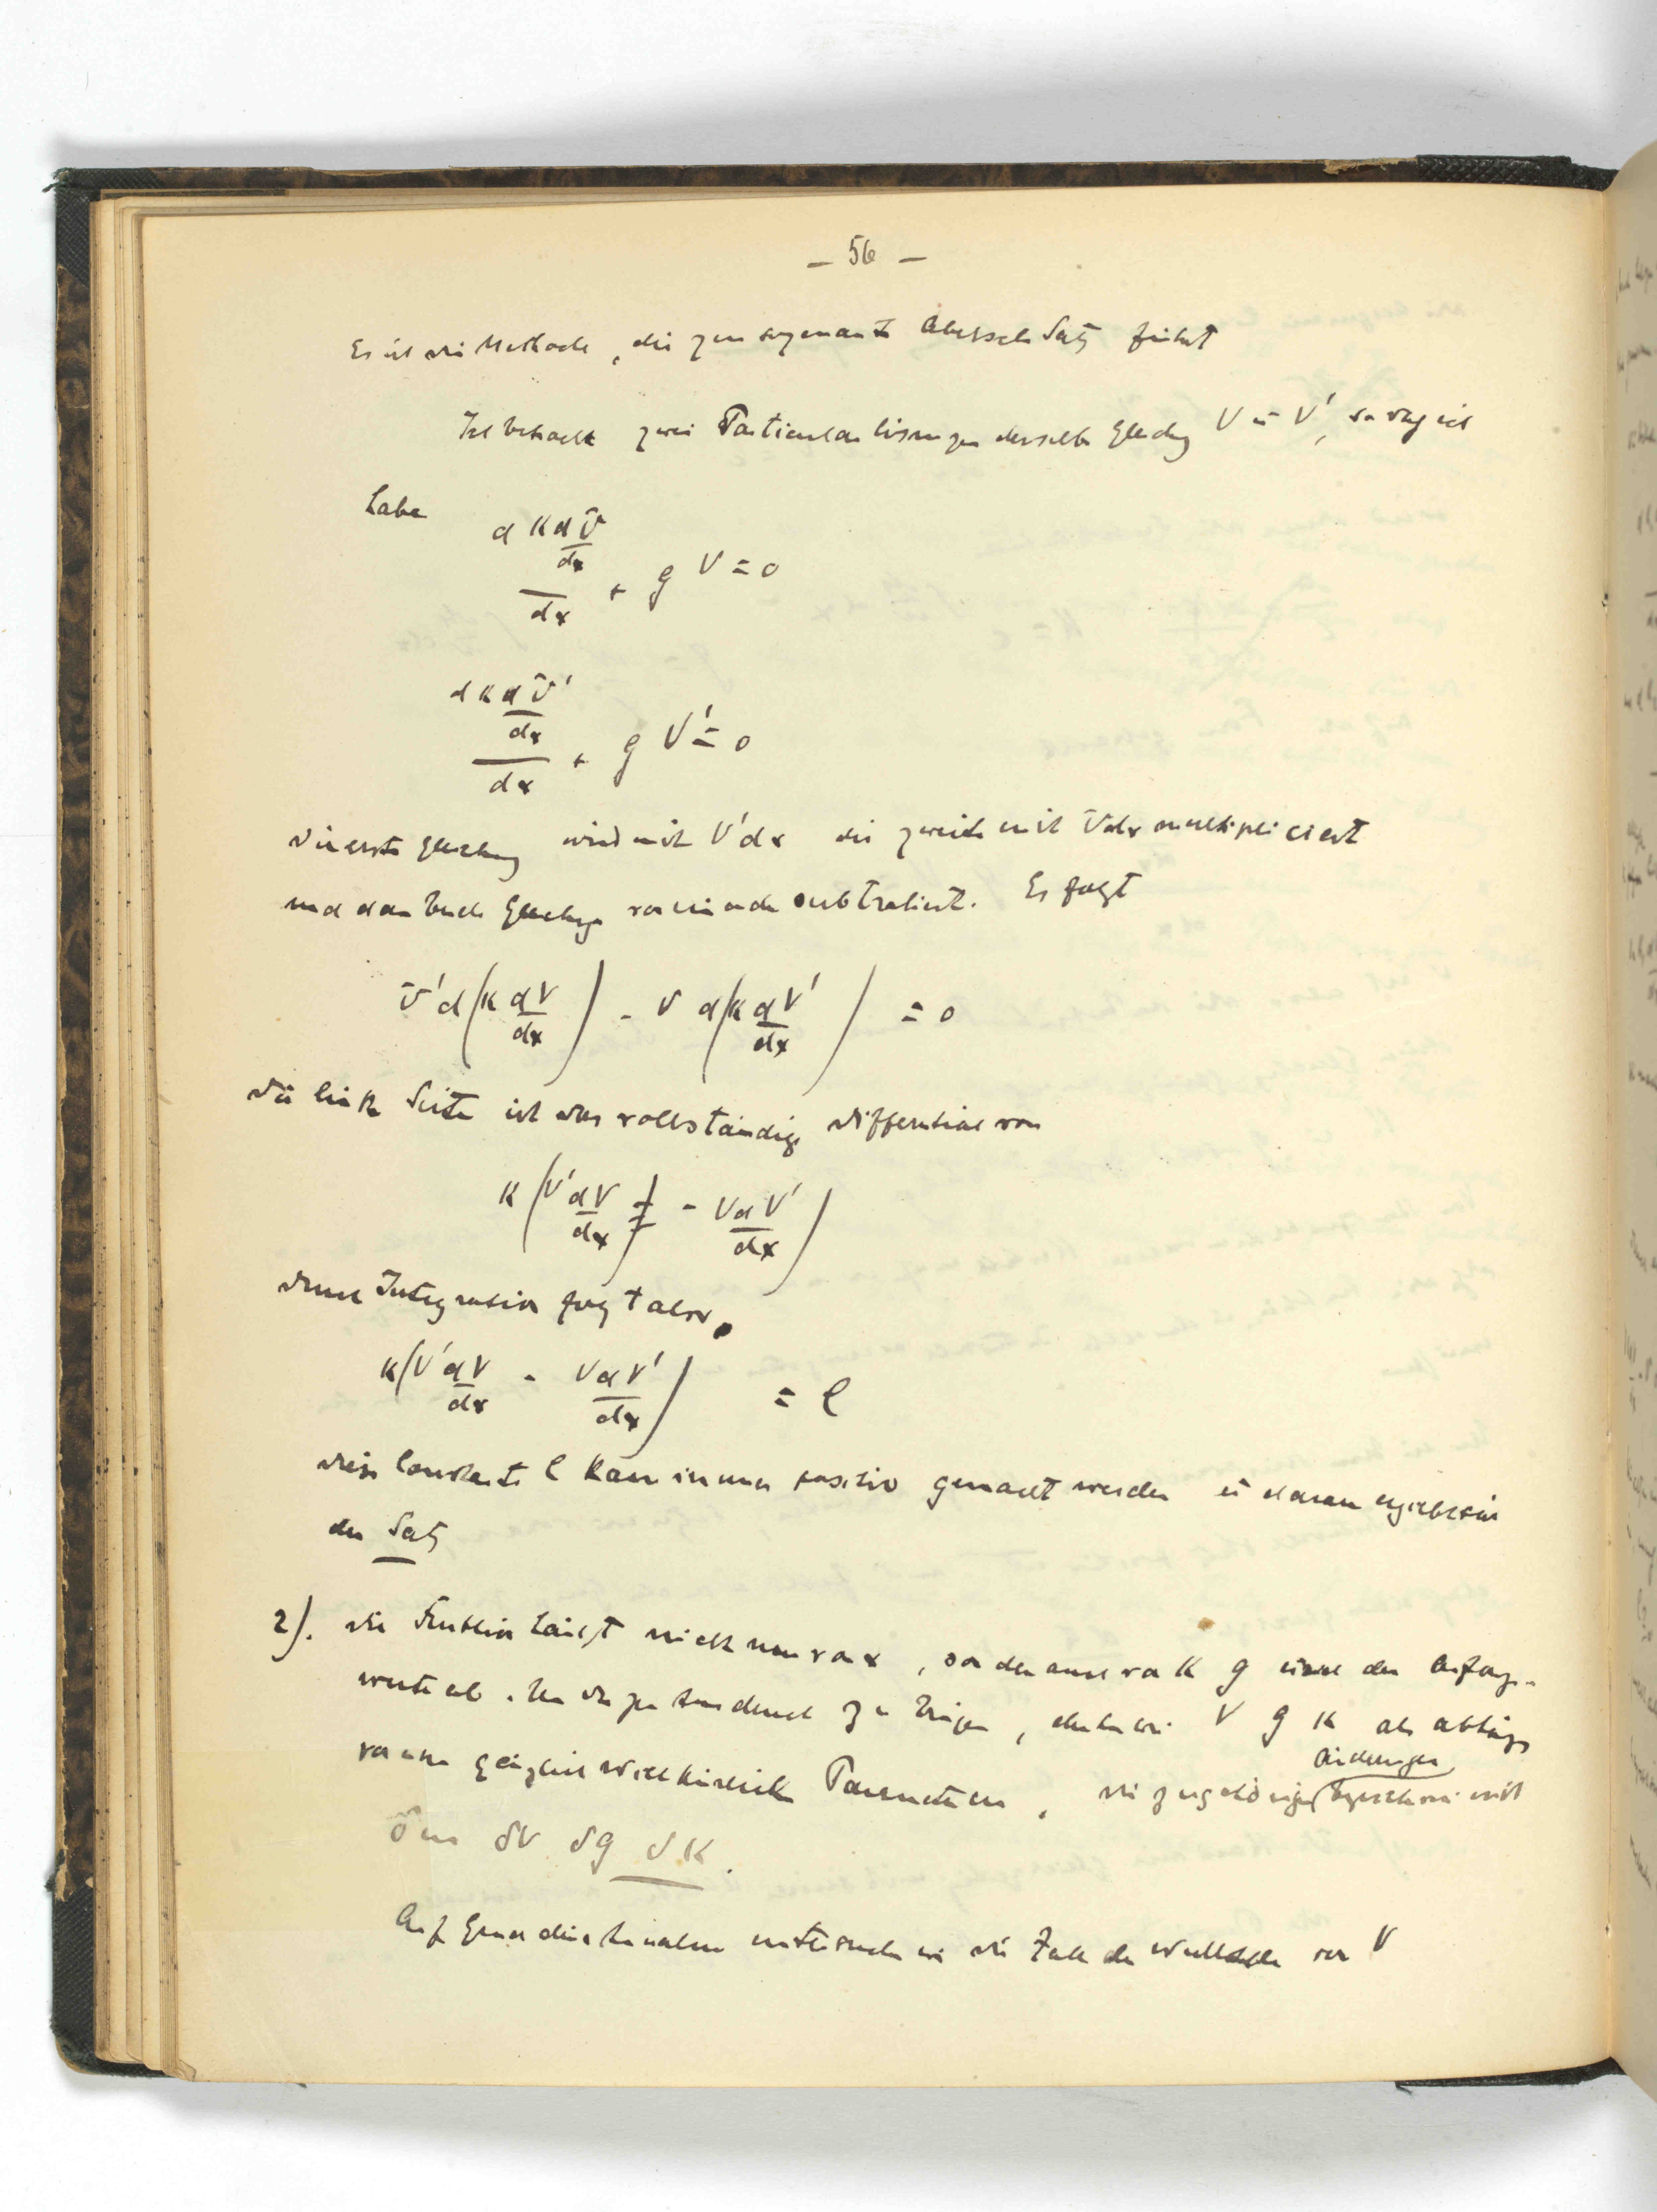 – 56 –
Es ist die Methode, die zum sogenannt Abelschen Satz führt
Ich betrachte zwei Particularlösungen derselben Gleichung V u V', so dass ich
habe
d K dV/dx / dx + g V = 0
d K dV'/dx / dx + g V' = 0
Die erste Gleichung wird mit V'dx die zweite mit Vdx multipliciert
und dann beide Gleichungen voneinander subtrahiert. Es folgt
V'd(K dV/dx) - V d(K dV'/dx) = 0
Die linke Seite ist das vollständige Differential von
K (V'dV/dx - VdV'/dx)
Durch Integration folgt also
K(V'dV/dx - VdV'/dx) = C
Diese Constante C kann immer positiv gemacht werden u daraus ergiebt sich
der Satz
2). Die Funktion hängt nicht nur von x, sondern auch von K g und den Anfangs-
werten ab. Um dies zum Ausdruck zu bringen, denken wir V g K als abhängig
von einem gänzlich willkürlichen Parameter m, die zugehörigen Änderungen bezeichnen wir mit
δm δV δg δK.
Auf Grund dieser Annahme untersuchen wir die Zahl der Nullstellen von V